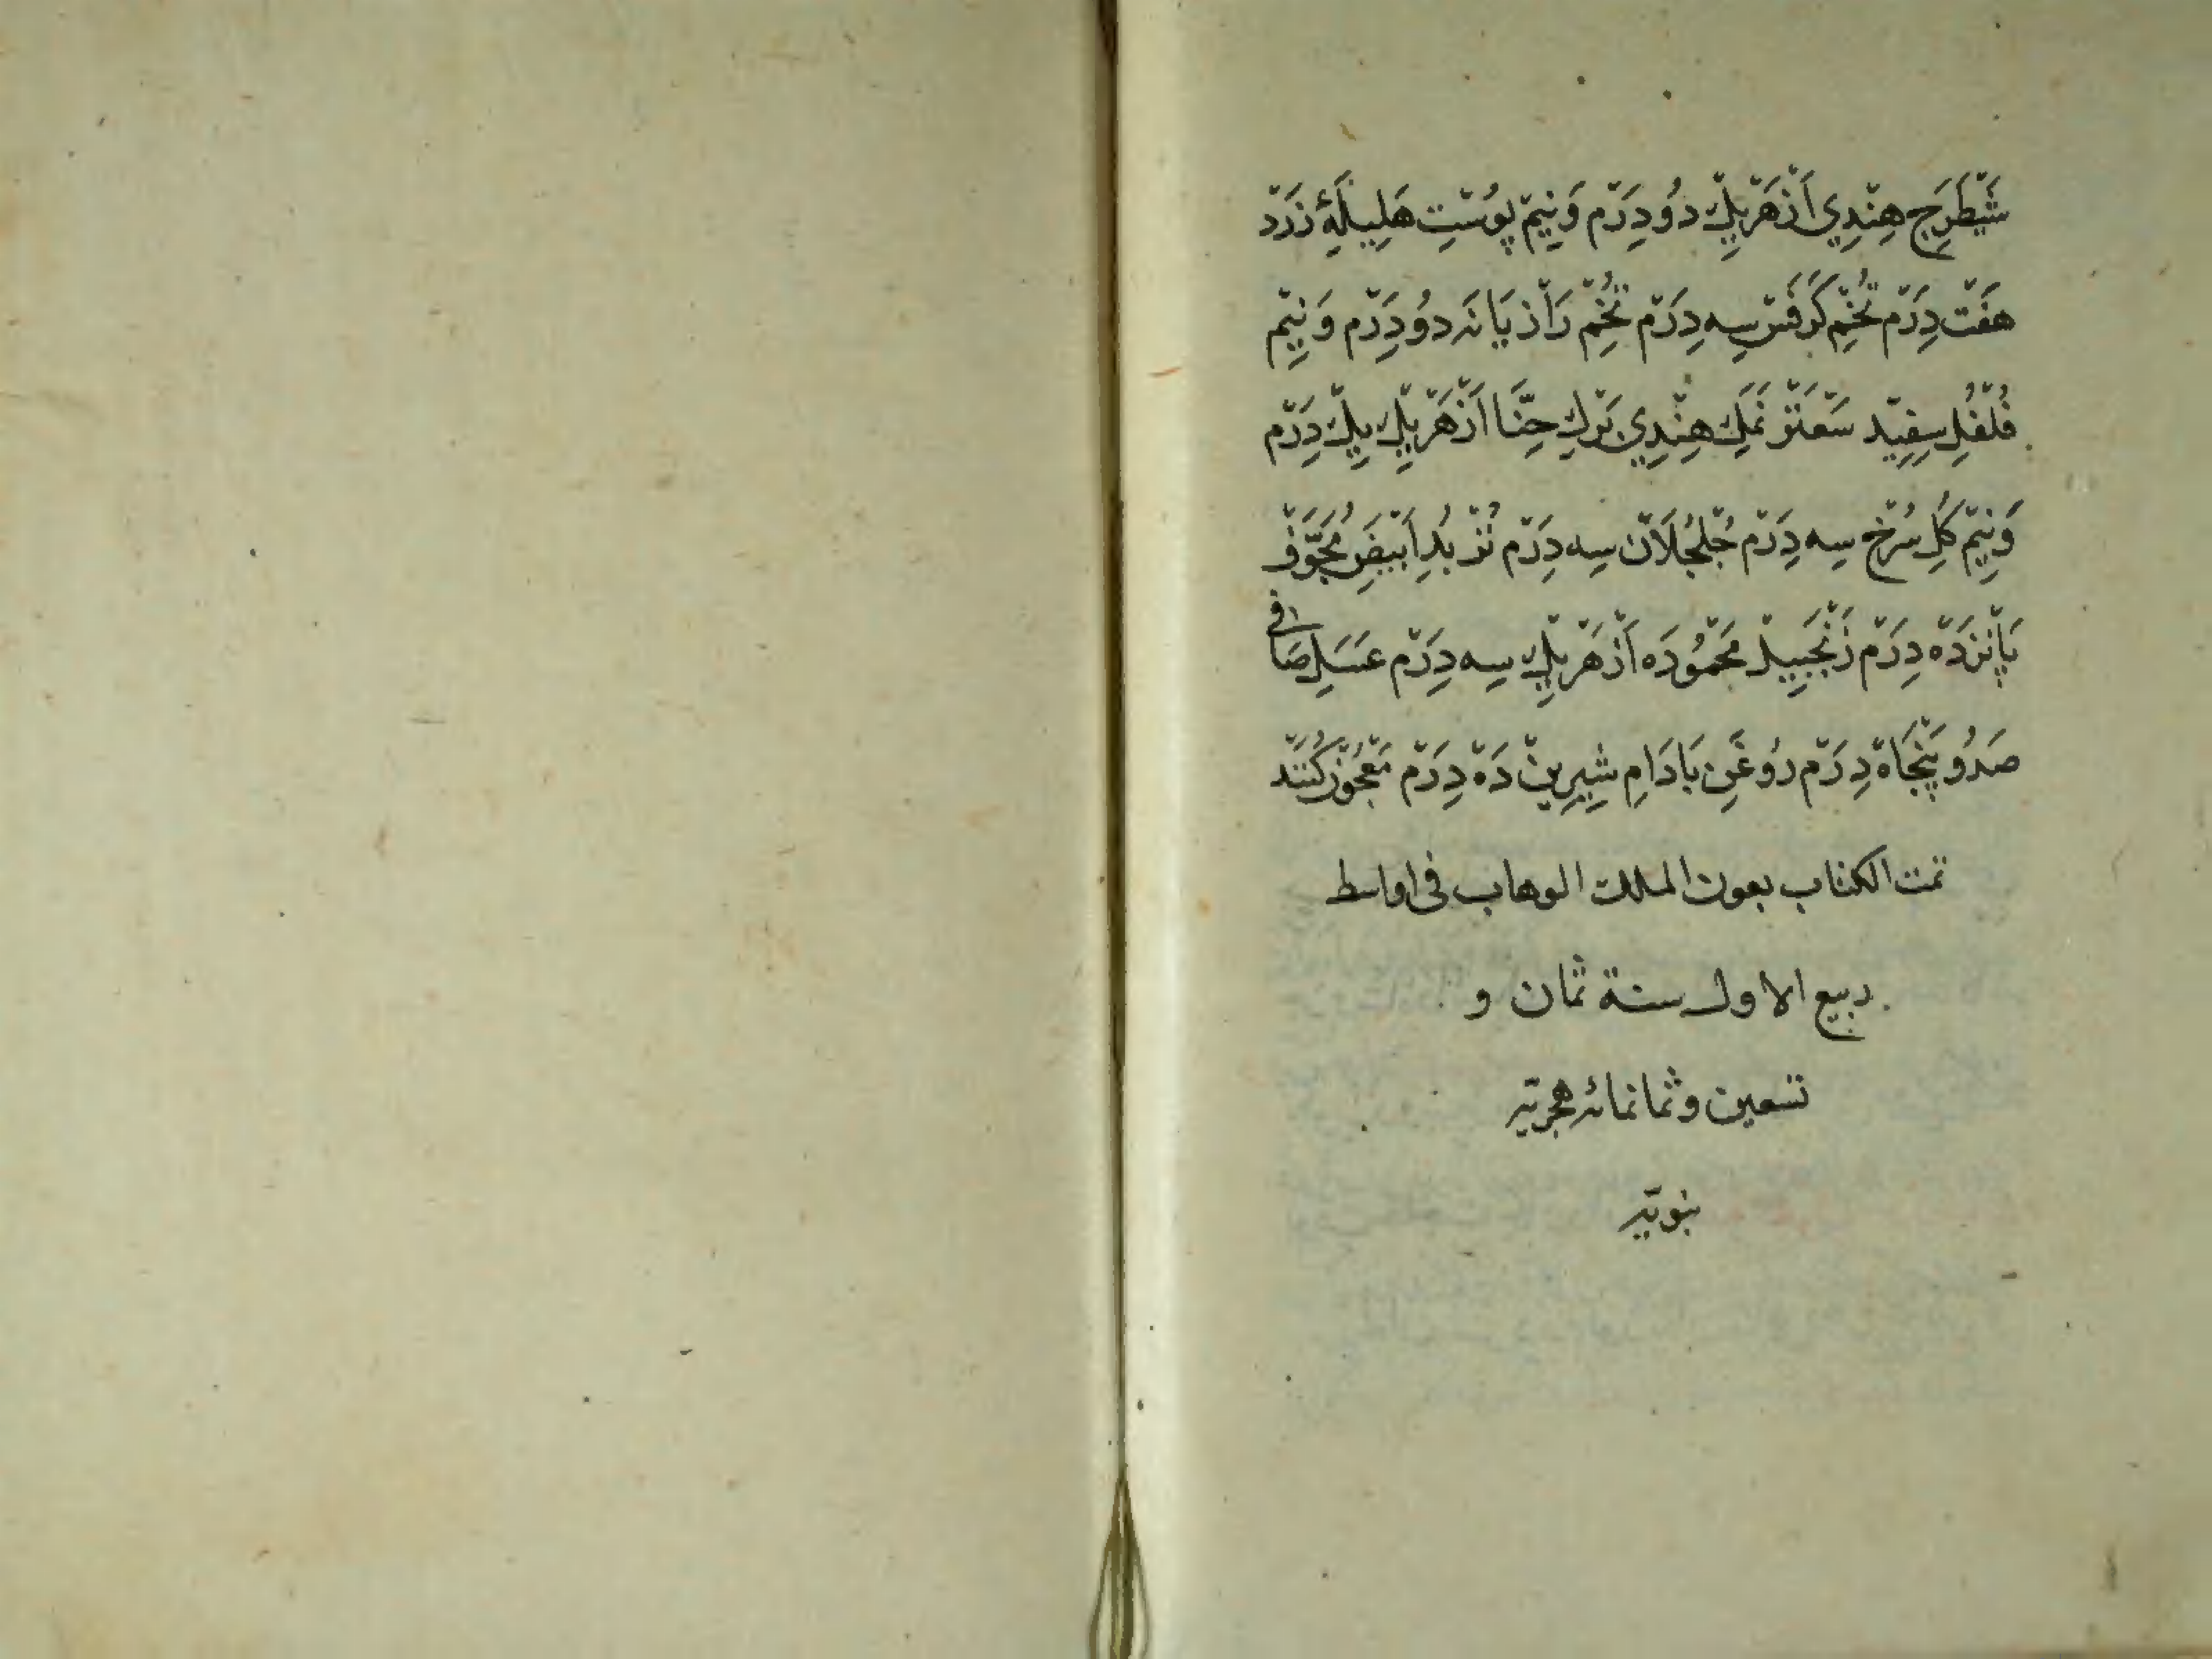 شَيْطَرَجِ هِنْدِي اَزْ هَرْ يِكْ دُو دِرَمْ وَ نِيمْ پُوسْتِ هَلِيلَۀِ زَرْدْ
هَفْتْ دِرَمْ تُخْمِ كَرَفْسْ سِه دِرَمْ تُخْمِ رَازْيَانَه دُو دِرَمْ وَ نِيمْ
فُلْفُلِ سِفِيدْ سَعْتَرْ نَمَكِ هِنْدِي بَرْكِ حِنَّا اَزْ هَرْ يِكْ يِكْ دِرَمْ
وَ نِيمْ كُلِ سُرْخْ سِه دِرَمْ جُلْجُلَانْ سِه دِرَمْ تُرْبُدِ اَبْيَضِ مُجَوَّفْ
پَانْزَدَهْ دِرَمْ زَنْجَبِيلْ مَحْمُودَه اَزْ هَرْ يِكْ سِه دِرَمْ عَسَلِ صَافِي
صَدُ و پَنْجَاهْ دِرَمْ رُوغَنِ بَادَامِ شِيرِينْ دَهْ دِرَمْ مَعْجُونْ كُنَنْدْ
تمت الكتاب بعون الملك الوهاب فى اواسط
ربيع الاول سنة ثمان و
تسعين و ثمانمائه هجريّه
نبويّه